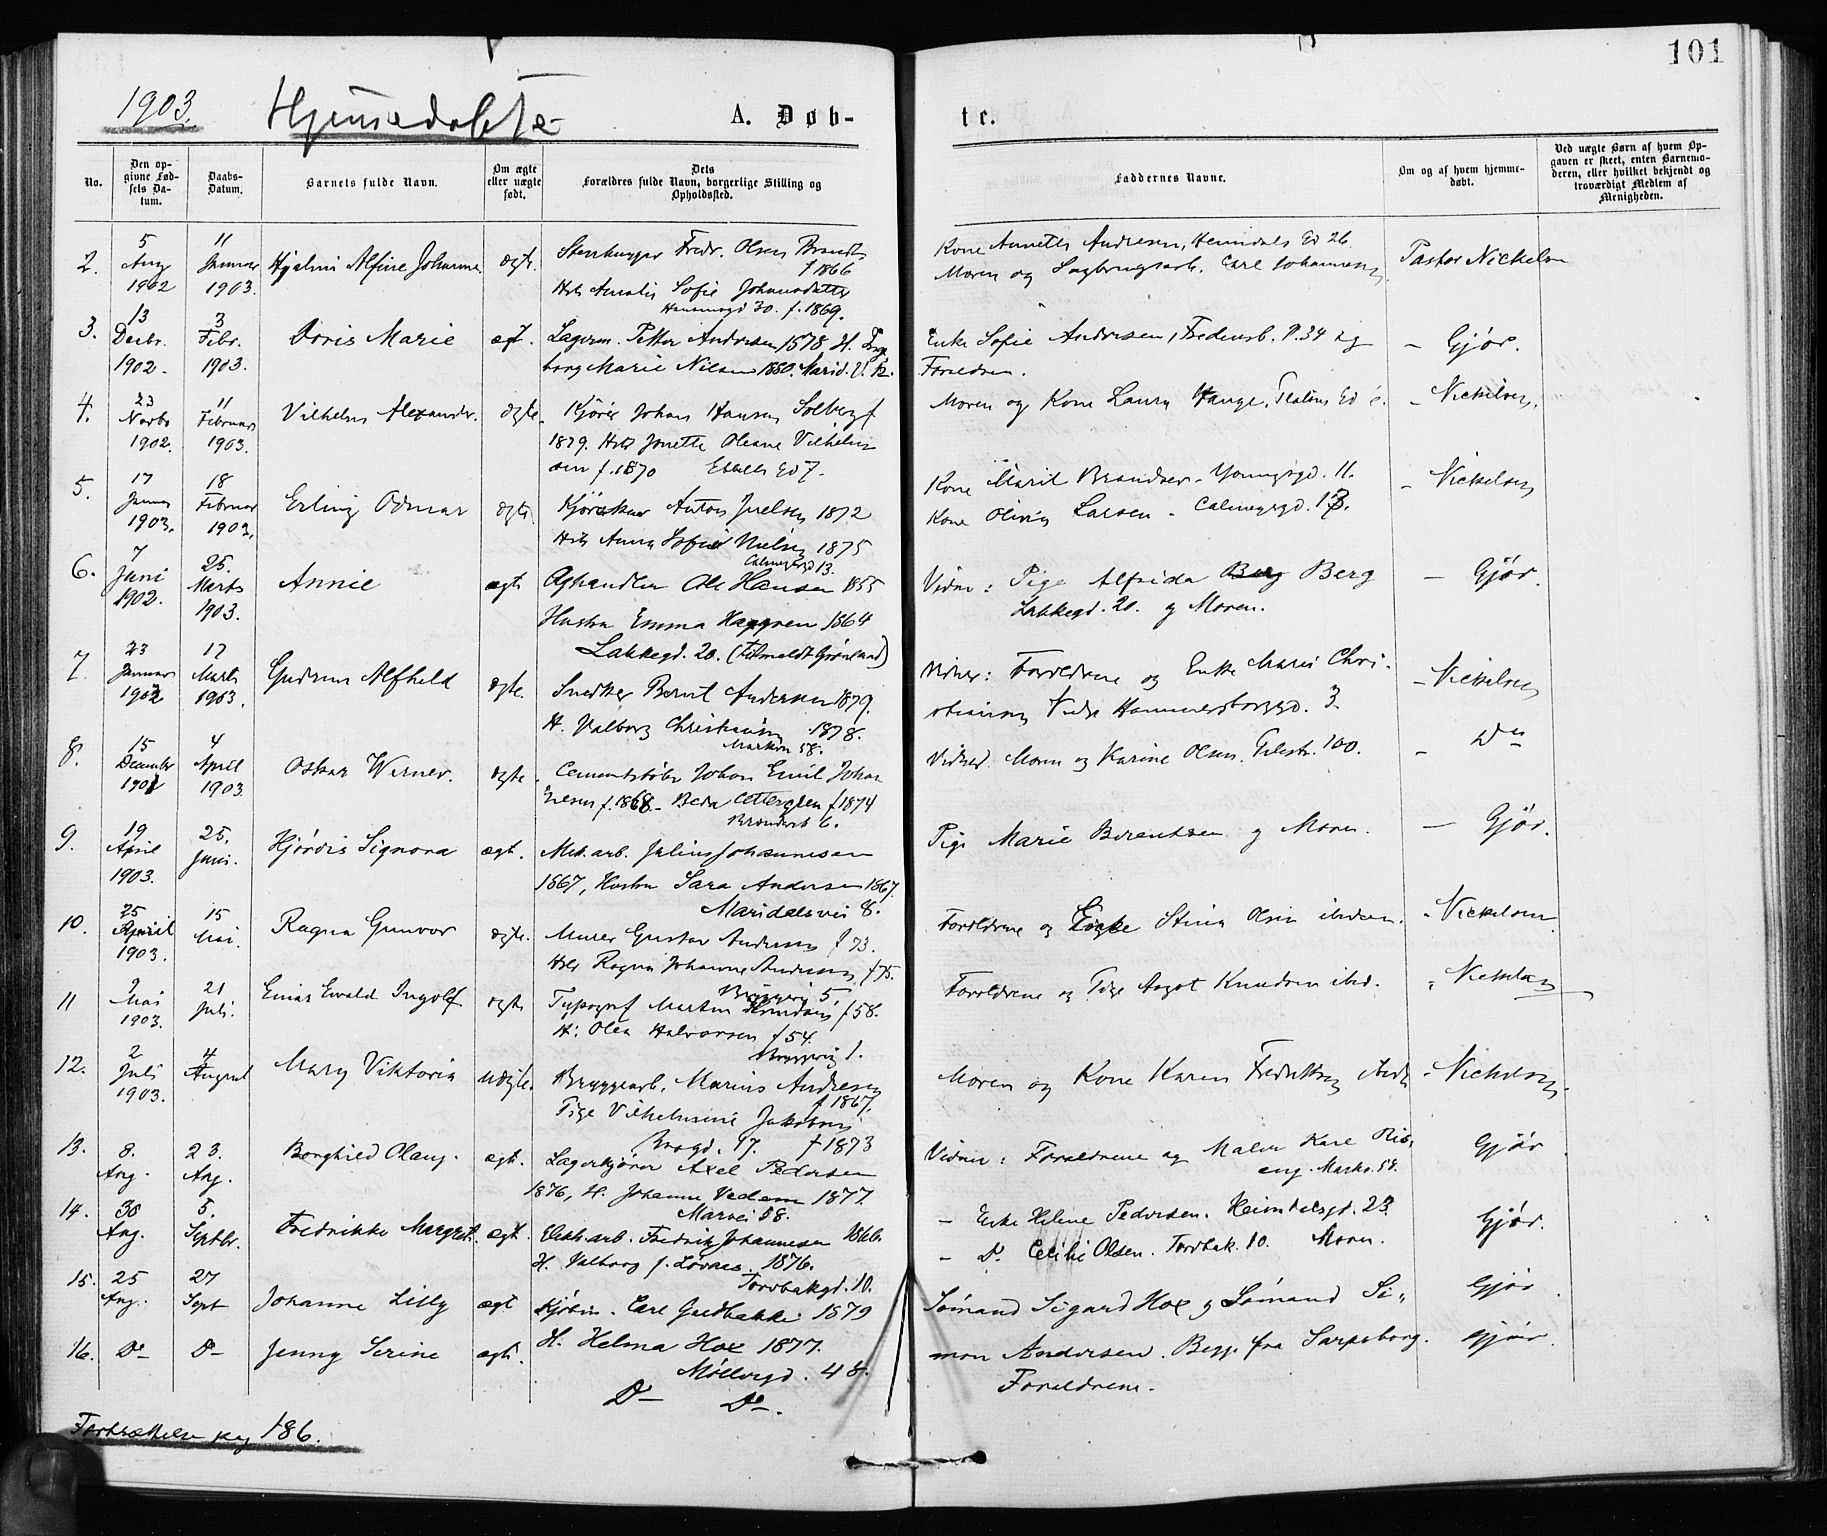 101
1903. Hjemmedøbte
A. Døb-
te.
No.
Den op-
givne Fød-
sels Da-
tum.
Daabs-
Datum.
Barnets fulde Navn.
Om ægte
eller uægte
født.
Dets
Forældres fulde Navn, borgerlige Stilling og
Opholdssted.
Faddernes Navne.
Om og af hvem hjemme-
døbt.
Ved uægte Børn af hvem Op-
gaven er skeet, enten Barnemo-
deren, eller hvilket bekjendt og
troværdigt Medlem af
Menigheden.
2.
5
Aug
1902
11
Januar
1903.
Hjalmi Alfine Johanne
ægte.
Stenhugger Fredr. Olsen Brandt
f 1866
Amalie Sofie Johansdatter
30. f. 1869.
Kone Annette Andresen, Heimdals Gd 26.
Moren og Sagbrugsarb. Carl Johannesen
Pastor Nickelsen
3.
13
Decbr.
1902.
3
Febr.
1903.
Doris Marie
ægt.
Lagerm. Petter Andresen 1878 H. Inge
borg Marie Nilsen 1880. Marid. V. 12.
Enke Sofie Andresen, Fredensb. V. 34 og
Foreldren.
– Gjør.
4.
23
Novbr
1902.
11
Februar
1903.
Vilhelm Alexander.
ægte.
Kjører Johan Hansen Solberg f
1879. Jonette Oleane Vilhelm
sen f. 1870 Gd 7.
Moren og Kone Laura Hauge,
– Nickelsen.
5.
17
Januar
1903.
18
Februar
1903.
Erling Odmar
ægte.
Kjørekar Anton Juelsen 1872
Anna Sofie Nielsen 1875
Calmeyergd 13.
Kone Marit Brandser - Youngsgd. 11.
Kone Olivia Larsen - Calmeyrgd. 13.
– Nickelsen
6.
7
Juni
1902.
25.
Marts
1903.
Annie
ægte
Aghandler Ole Hansen 1855
Hustru Emma Haggren 1864
Lakkegd. 20. (Tilmeldt Grønland)
Vidner: Pige Alfrida Berg Berg
Lakkegd. 20. og Moren.
– Gjør.
7.
23
Januar
1903
17
Marts
1903.
Gudrun Alfhild
ægte.
Snedker Bernt Andersen 1879.
H. Valborg Christiansen 1878.
Markvn 58.
Vidner: Foreldrene og Enke Maren Chri-
stiansen Hammersborggd. 3.
– Nickelsen
8.
15
December
1902
4
April
1903.
Oskar Werner.
ægte.
Cementstøber Johan Emil Johan
nesen f. 1868. Beda Ottergren f 1874
6.
Vidner. Moren og Karine Olsen. Telestr. 100.
– Do
9.
19
April
1903.
25.
Juni.
Hjørdis Signora
ægt.
Mek.arb. Julius Johannesen
1867, Hustru Sara Andersen 1867.
Maridalsvei 8.
Pige Marie Berentsen og Moren.
– Gjør.
10.
25
April
1903.
15
Mai.
Ragna Gunvor
ægte.
Murer Gustav Andersen f 73.
Ragna Johanne Andersen f 75.
5.
Foreldrene og Enke Stina Olsen ibidem.
– Nickelsen
11
2
Mai
1903.
21
Juli.
Einar Ewald Ingolf
ægte
Typograf Martin f 58.
H. Olea Halvorsen f 54.
1.
Foreldrene og Pige Aagot Knudsen ibid.
– Nickelsen
12.
2
Juli
1903.
4
August
Mary Viktoria
uægte.
Bryggearb. Marius Andresen
f 1867.
Pige Vilhelmine Jakobsen
Brogd. 17. f 1873
Moren og Kone Karen Fredriksen
– Nickelsen.
13.
8.
Aug.
23.
Aug.
Borghild Olaug.
ægt.
Lagerkjører Axel Pedersen
1876, H. Johanne Vedem 1877.
Markvei 58.
Vidner: Foreldrene og Maler Karl Ris,
eng. Markv. 58.
Gjør
14.
30
Aug.
5.
Septbr.
Fredrikke Margret.
ægt.
Elekt.arb. Fredrik Johannesen 1866.
H. Valborg f. Lovaas. 1876.
Torvbakgd. 10.
– Enke Helene Pedersen. Heimdalsgd. 23
– Do Cecilie Olsen. Torvbak. 10. Moren.
Gjør.
15.
25
Aug.
27
Sept
Johanne Lilly
ægt
Kjøbm. Carl Gudbakke 1879
H. Helma Hox 1877.
Møllergd. 48.
Sømand Sigurd Hox og Sømand Si-
mon Andersen. Begge fra Sarpsborg.
Foreldrene.
Gjør.
16.
Do
Do
Jenny Serine
ægt.
Do Do.
Gjør.
Fortsættelse pag 186.